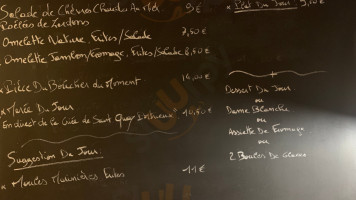 Salade de Chèvres Chauds Au Miel 9€
Poêlée de Lardons
Omelette Nature Frites/Salade 7,50€
Omelette Jambon/Fromage, Frites/Salade 8,50€
* Pièce Du Boucher Du Moment 14,00€
* Marée Du Jour
En direct de la Criée de Saint Quay 10,50€
Suggestion Du Jour:
* Moules Marinières Frites 11€
* Plat Du Jour 9,50€
Dessert Du Jour
ou
Dame Blanche
ou
Assiette De Fromage
ou
2 Boules De Glace